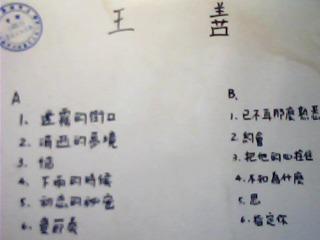 王
A
1. 迷霧的街口
2. 消逝的夢境
3.
4. 下雨的時候
5. 初戀的秘密
6.
B.
1. 已不再那麼熟悉
2. 約會
3. 把他的心拴住
4. 不知為什麼
5. 思
6. 指定你